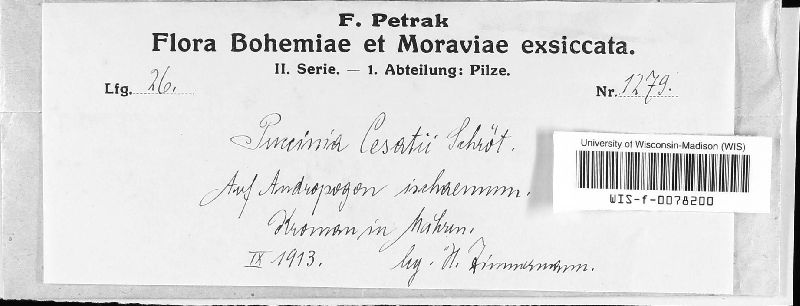 F. Petrak
Flora Bohemiae et Moraviae exsiccata.
II. Serie. — 1. Abteilung: Pilze.
Lfg. 26.
Nr. 1279.
Puccinia Cesatii Schröt.
University of Wisconsin-Madison (WIS)
WIS-f-0078200
Auf Andropogon ischaemum.
Kromau in Mähren.
IX 1913. lég. H. Zimmermann.